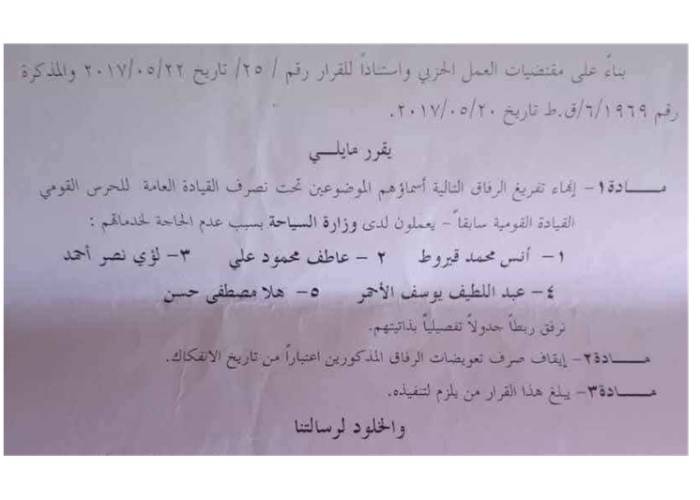 بناءً على مقتضيات العمل الحزبي واستناداً للقرار رقم / ٢٥/ تاريخ ٢٠١٧/٠٥/٢٢ والمذكرة
رقم ٦/١٩٦٩/ق.ط تاريخ ٢٠١٧/٠٥/٢٠.
يقرر مايلــي
مــــادة١- إنهاء تفريغ الرفاق التالية أسماؤهم الموضوعين تحت تصرف القيادة العامة للحرس القومي
القيادة القومية سابقاً - يعملون لدى وزارة السياحة بسبب عدم الحاجة لخدماتهم :
١- أنس محمد قيروط ٢- عاطف محمود علي ٣- لؤي نصر أحمد
٤- عبد اللطيف يوسف الأحمر ٥- هلا مصطفى حسن
نرفق ربطاً جدولاً تفصيلياً بذاتيتهم.
مــــادة٢- إيقاف صرف تعويضات الرفاق المذكورين اعتباراً من تاريخ الانفكاك.
مــــادة٣- يبلغ هذا القرار من يلزم لتنفيذه.
والخلود لرسالتنا